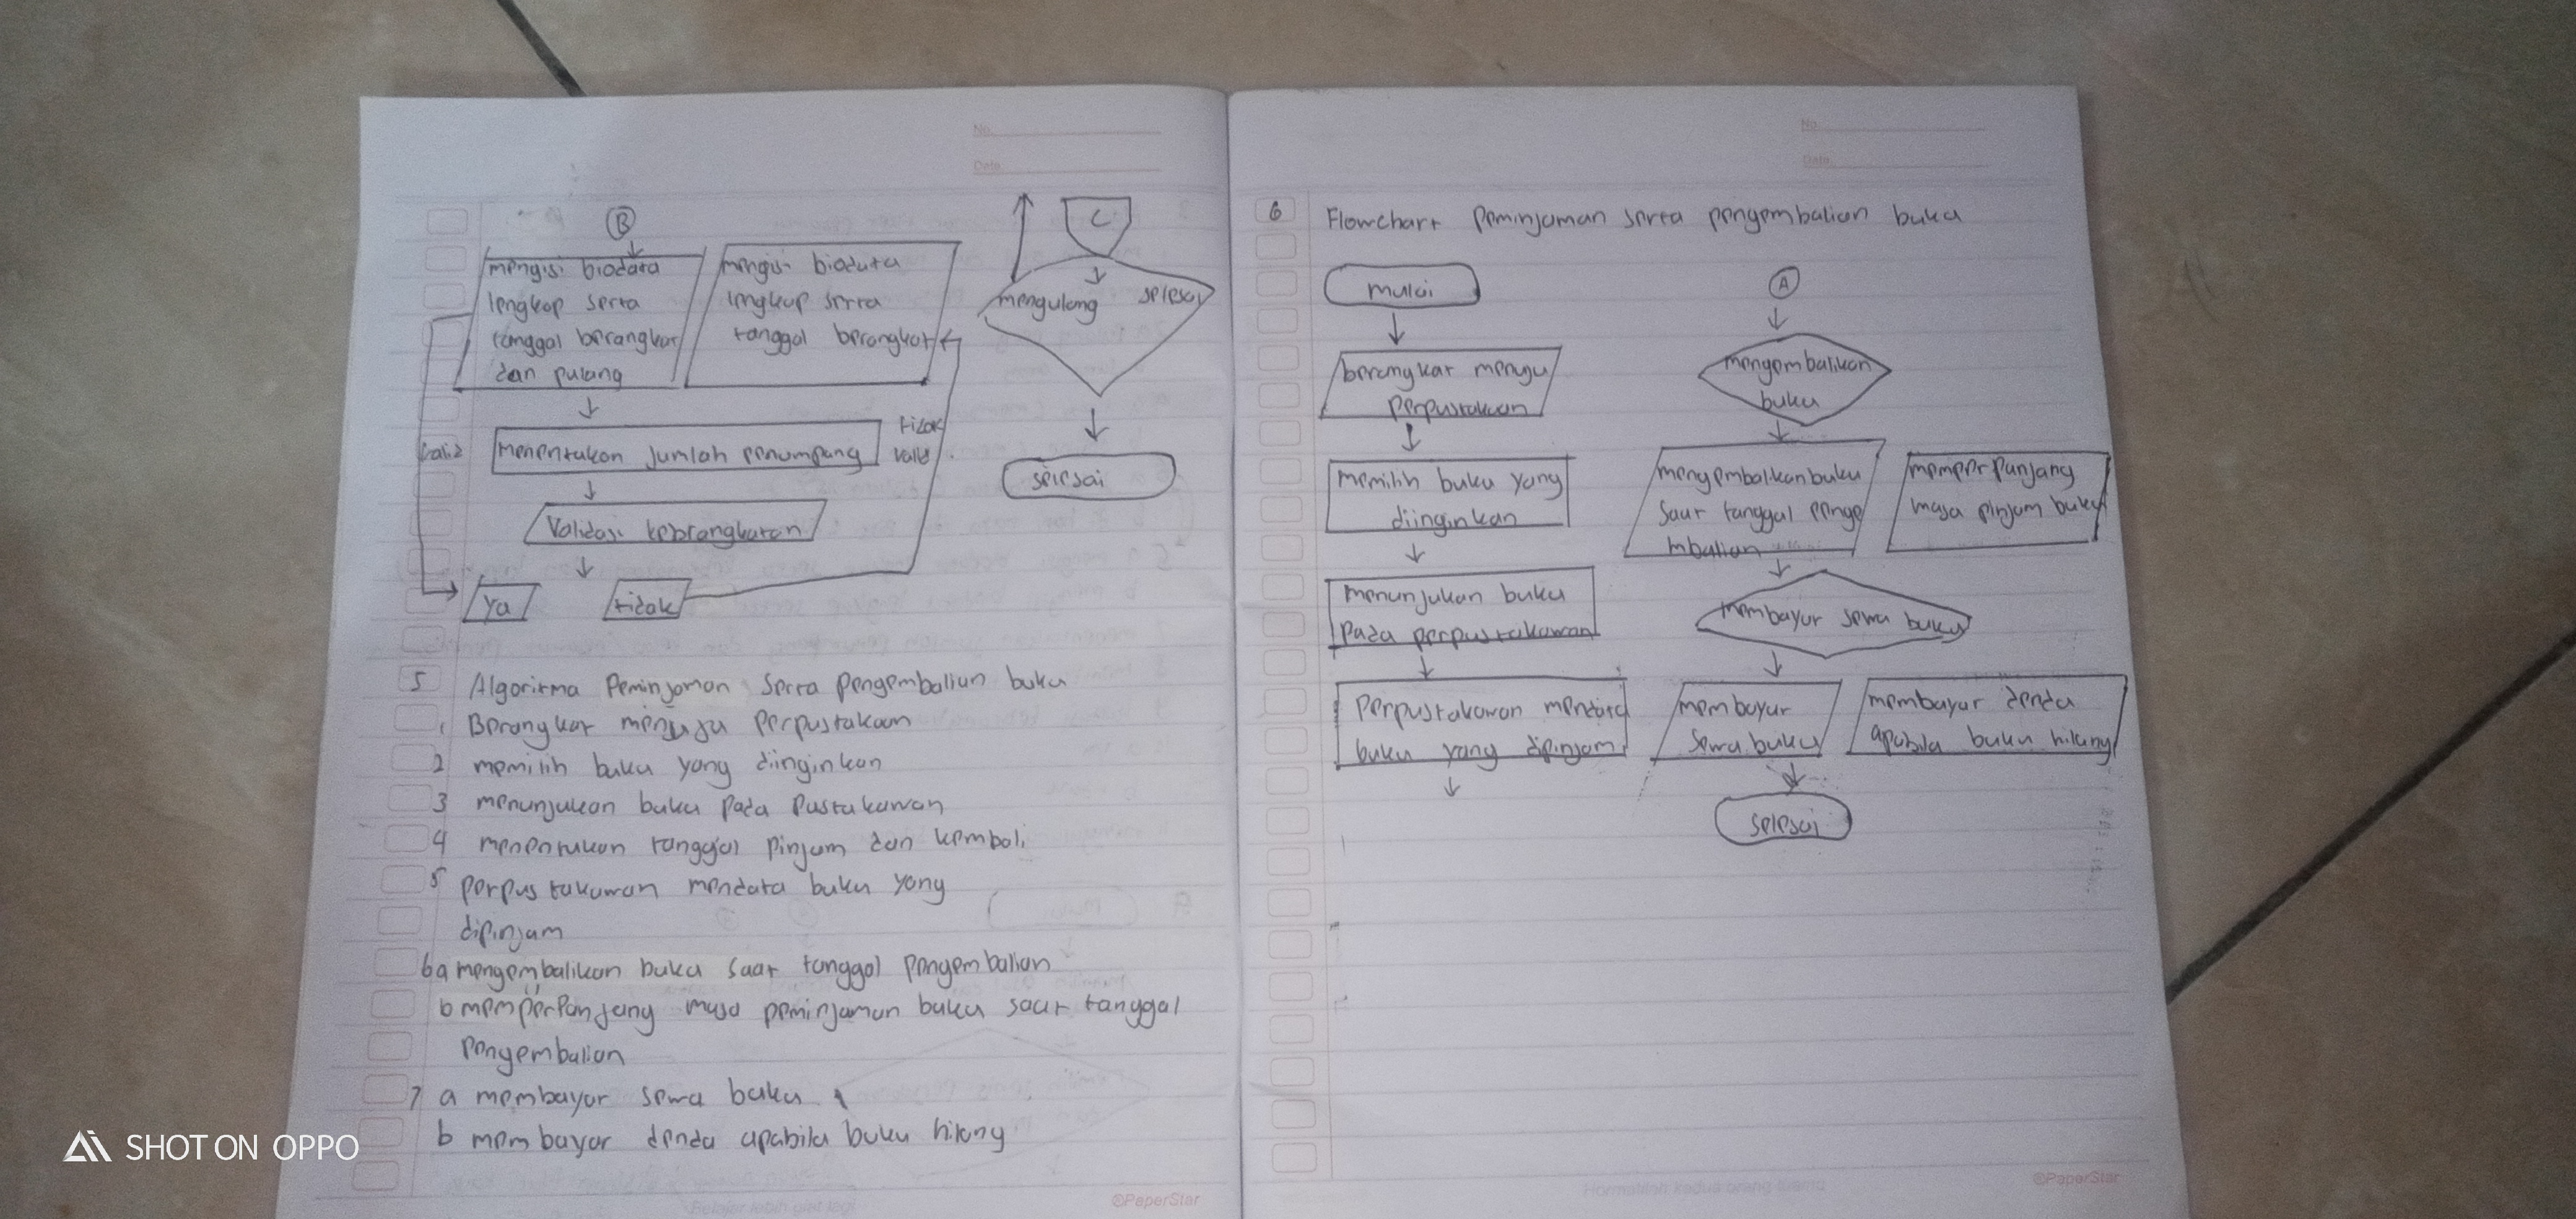 No
Date
B
mengisi biodata
lengkap serta
tanggal berangkat
dan pulang
mengisi biodata
lengkap serta
tanggal berangkat
C
mengulang
selesai
Menentukan jumlah penumpang
tidak
valid
valid
Validasi keberangkatan
Ya
tidak
selesai
5 Algoritma Peminjaman serta pengembalian buku
1 Berangkat menuju perpustakaan
2 memilih buku yang diinginkan
3 menunjukan buku pada pustakawan
4 menentukan tanggal pinjam dan kembali
5 perpustakawan mendata buku yang
dipinjam
6 a mengembalikan buku saat tanggal pengembalian
b memperpanjang masa peminjaman buku saat tanggal
pengembalian
7 a membayar sewa buku
b membayar denda apabila buku hilang
@PaperStar
No
Date
6 Flowchart peminjaman serta pengembalian buku
mulai
berangkat menuju
perpustakaan
memilih buku yang
diinginkan
menunjukan buku
pada perpustakawan
Perpustakawan mendata
buku yang dipinjam
A
mengembalikan
buku
mengembalikan buku
saat tanggal penge
mbalian
memperpanjang
masa pinjam buku
membayar sewa buku
membayar
sewa buku
membayar denda
apabila buku hilang
selesai
@PaperStar
SHOT ON OPPO